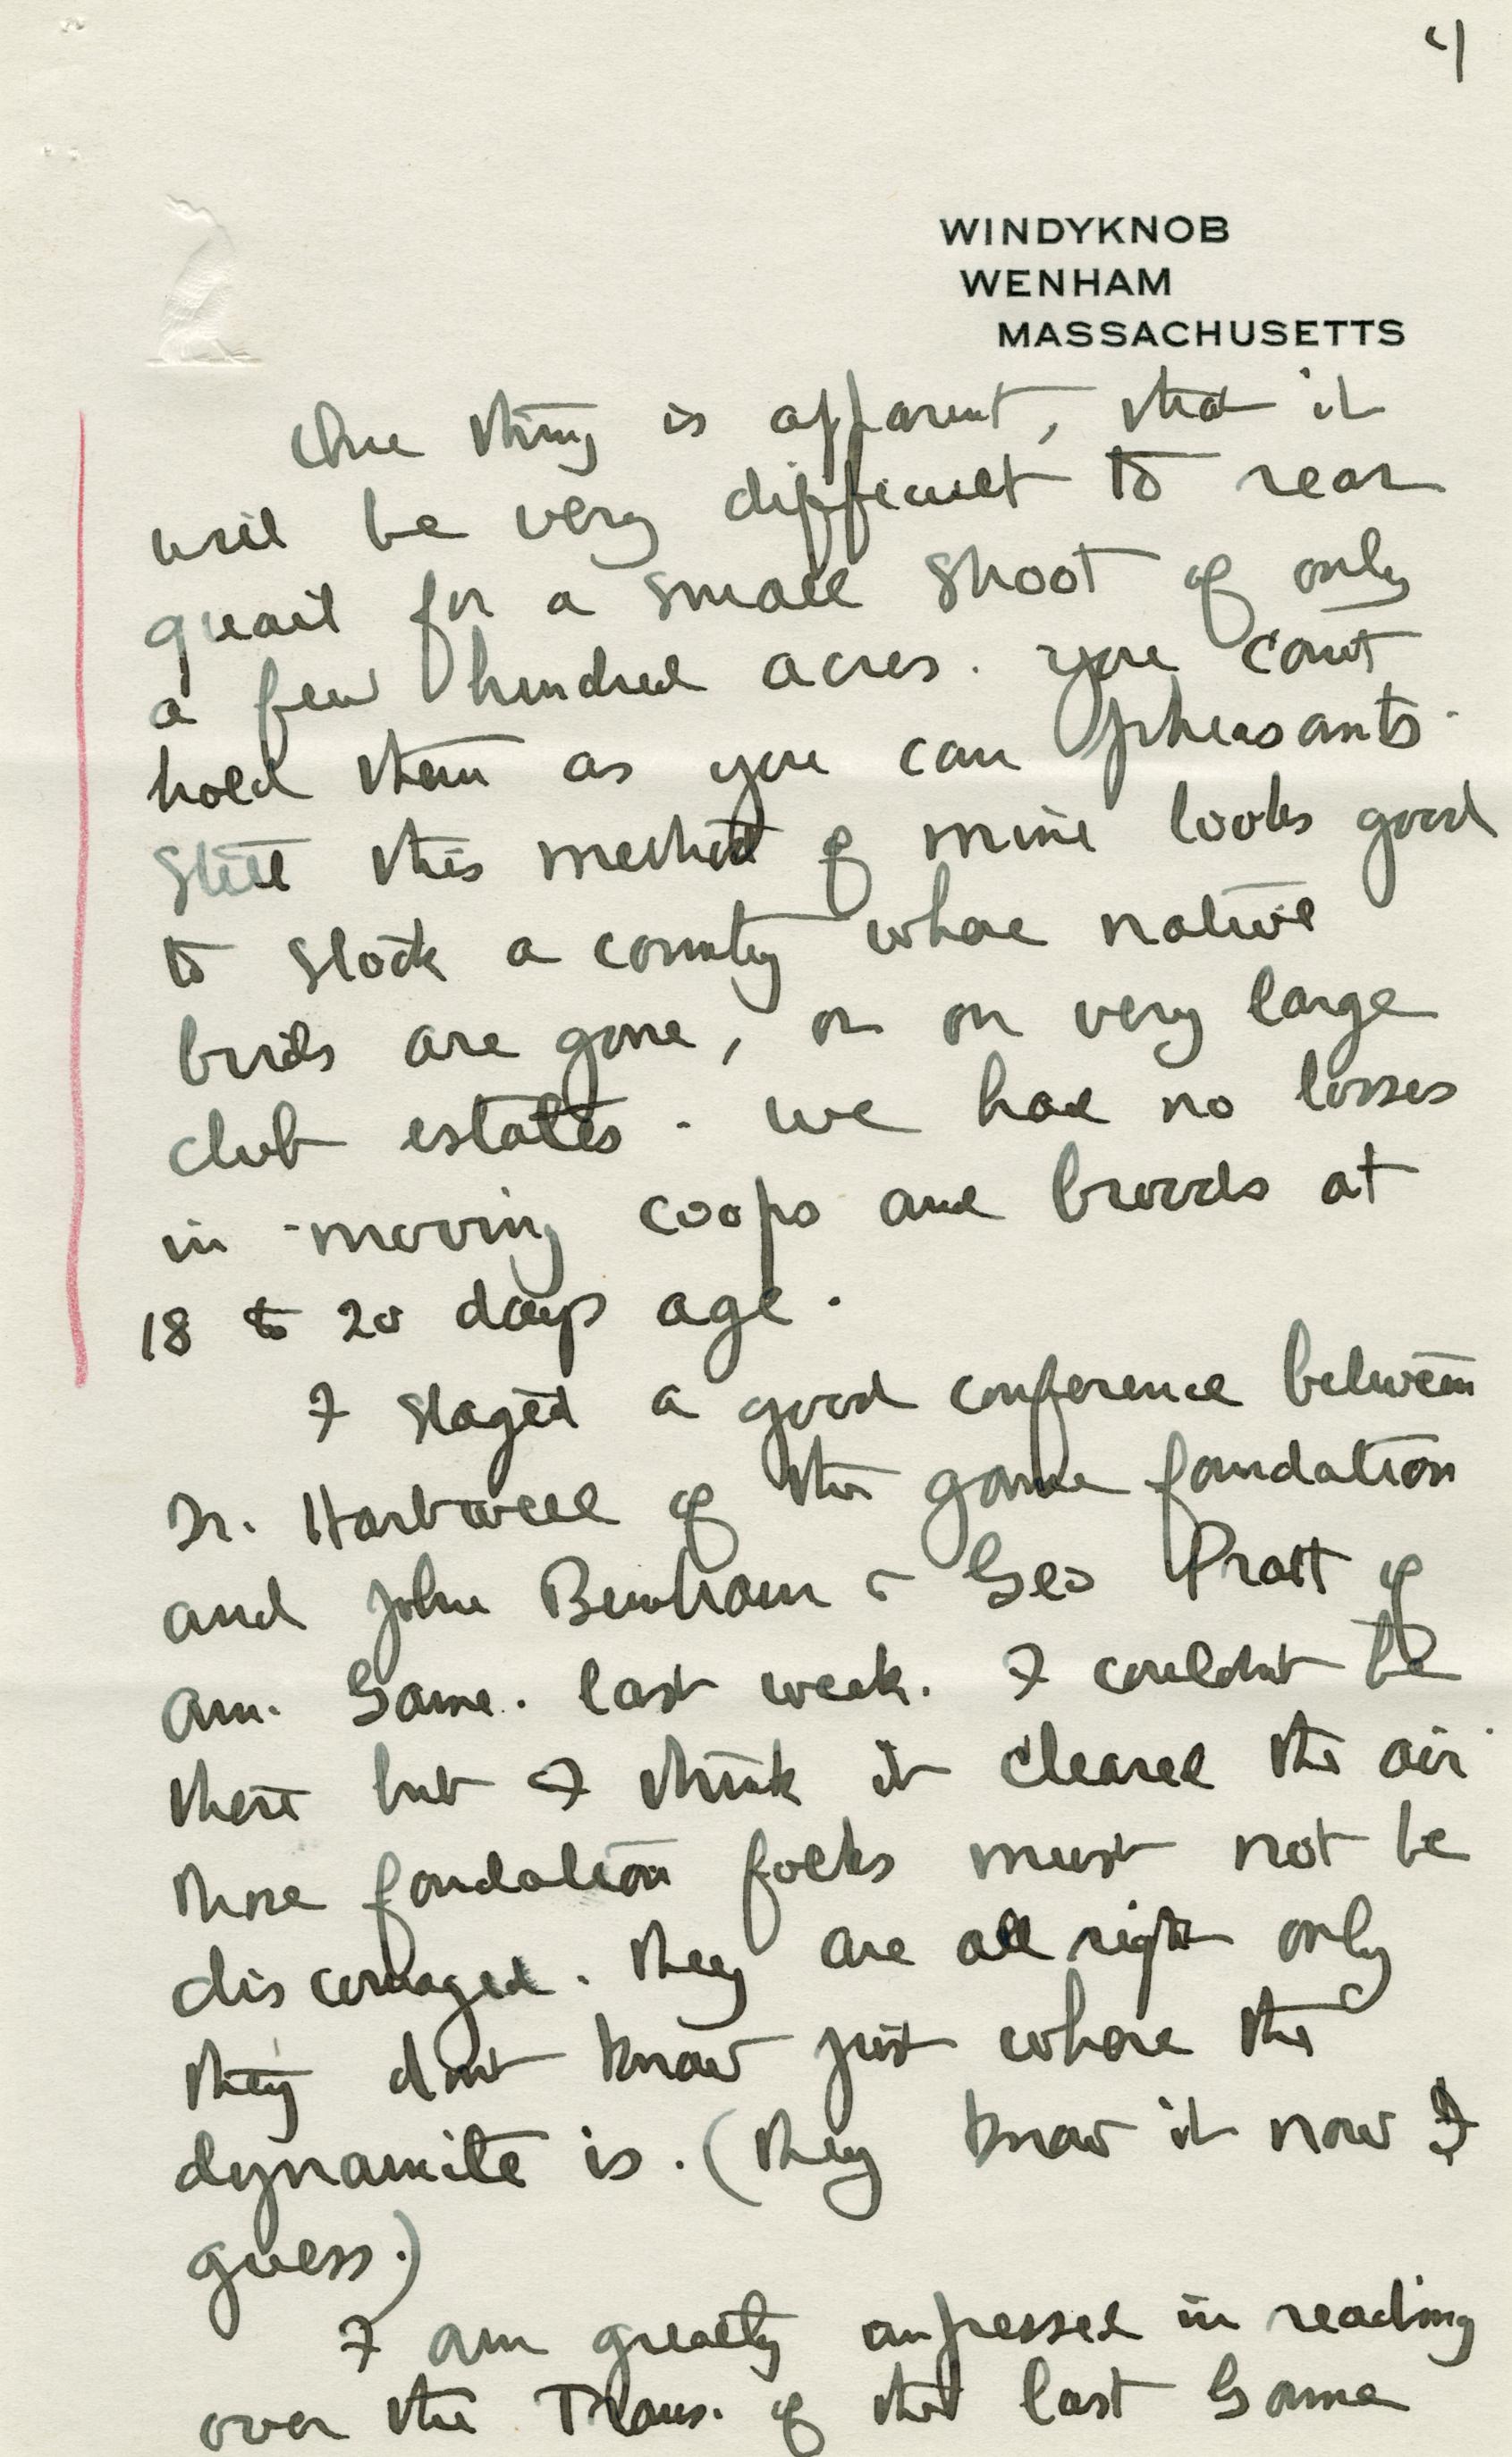 4
WINDYKNOB
WENHAM
MASSACHUSETTS
One thing is apparent, that it
will be very difficult to rear
quail for a small shoot of only
a few hundred acres. You can't
hold them as you can pheasants.
Still this method of mine looks good
to stock a country where native
birds are gone, or on very large
club estates. We had no losses
in moving coops and broods at
18 to 20 days age.
I staged a good conference between
Dr. Hartwell of the game foundation
and John Burnham & Geo Pratt of
Am. Game. last week. I couldnt be
there but I think it cleared the air.
These foundation folks must not be
discouraged. They are all right only
they dont know just where the
dynamite is. (They know it now I
guess.)
I am greatly impressed in reading
over the Trans. of the last Game